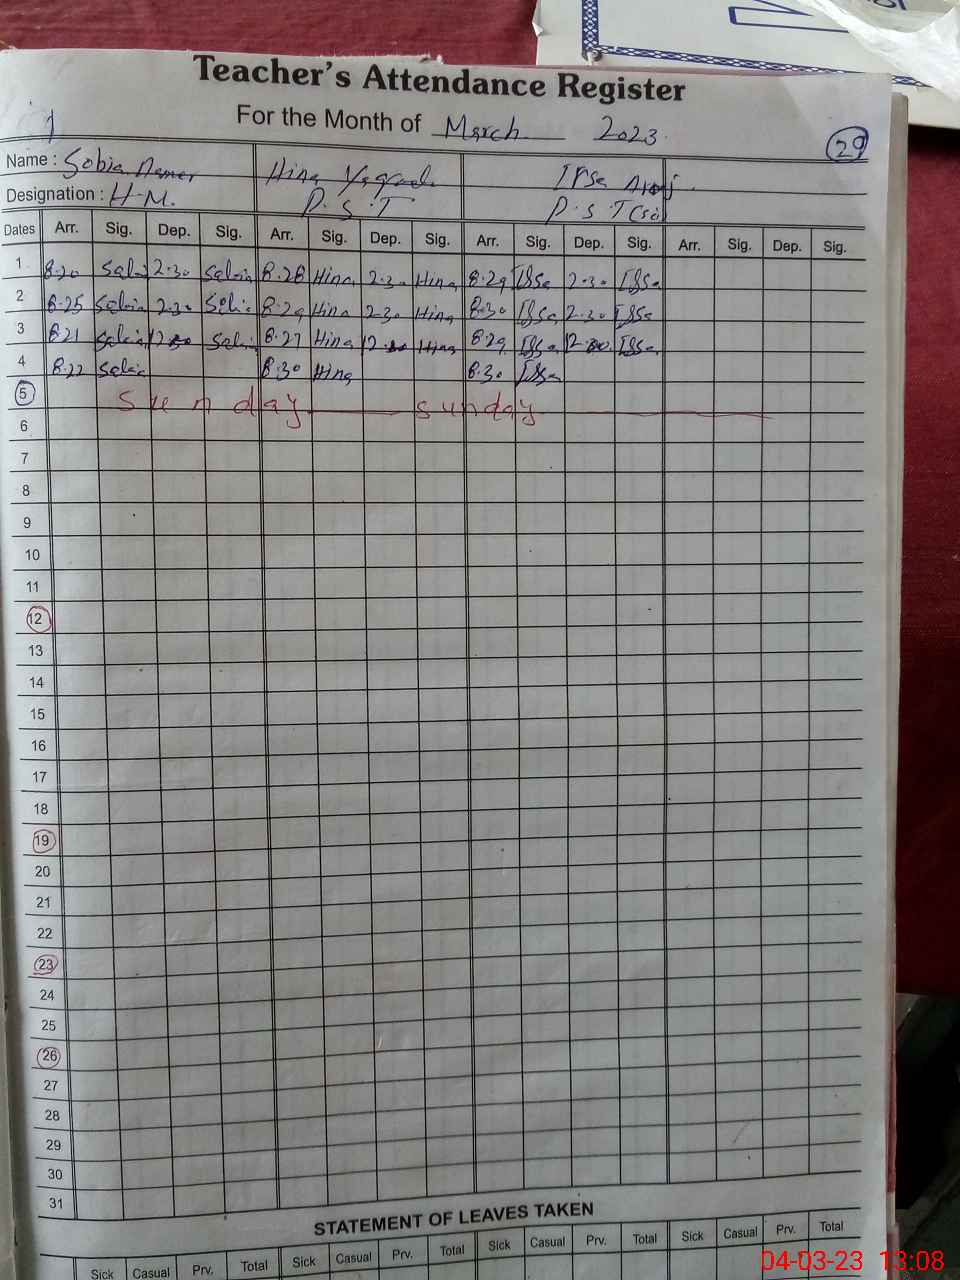 Teacher's Attendance Register
For the Month of March 2023
29
Name : Sobia Hina Irsa
Designation : H.M. P.S.T P.S.T
Dates Arr. Sig. Dep. Sig. Arr. Sig. Dep. Sig. Arr. Sig. Dep. Sig. Arr. Sig. Dep. Sig.
1 8.20 2.30 8.28 Hina 2.30 Hina 8.29 2.30
2 8.25 2.30 8.29 Hina 2.30 Hina 8.30 2.30
3 8.21 8.27 Hina Hina 8.29
4 8.22 8.30 Hina 8.30
5 Sunday sunday
6
7
8
9
10
11
12
13
14
15
16
17
18
19
20
21
22
23
24
25
26
27
28
29
30
31
STATEMENT OF LEAVES TAKEN
Sick Casual Prv. Total Sick Casual Prv. Total Sick Casual Prv. Total Sick Casual Prv. Total
04-03-23 13:08